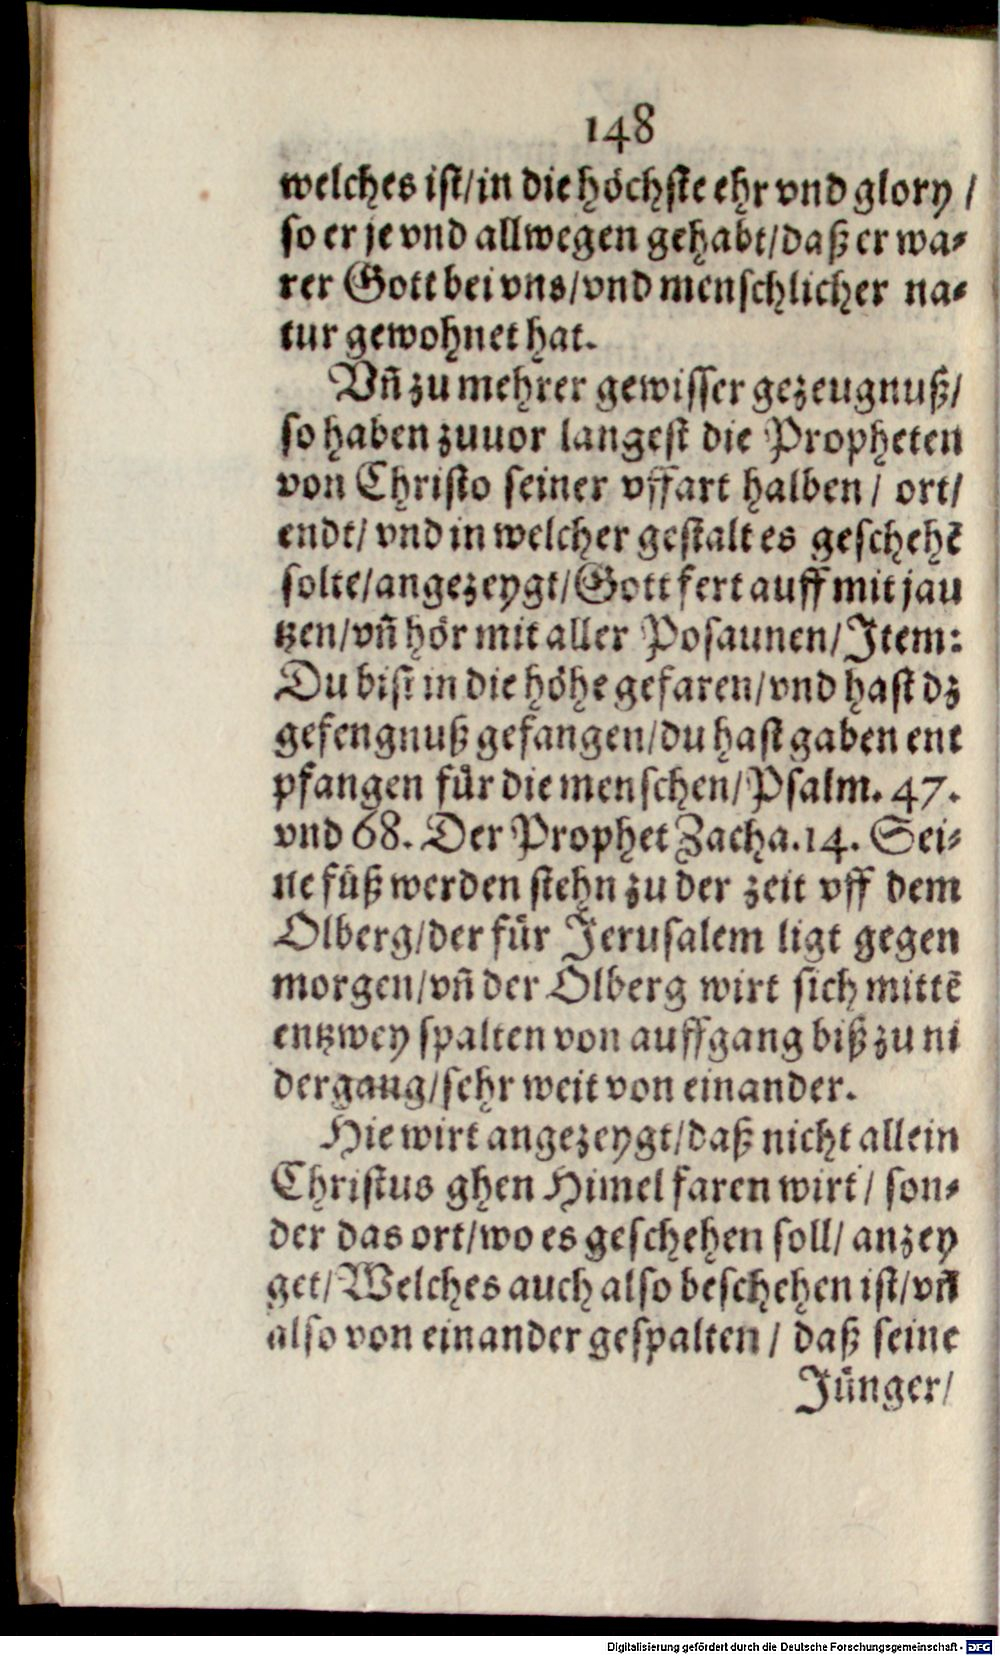 148
welches ist/in die höchste ehr vnd glory /
so er je vnd allwegen gehabt/daß er wa⸗
rer Gott bei vns/vnd menschlicher na⸗
tur gewohnet hat.
Vñ zu mehrer gewisser gezeugnuß/
so haben zuuor langest die Propheten
von Christo seiner vffart halben / ort/
endt/ vnd in welcher gestalt es geschehē
solte/angezeygt/Gott fert auff mit jau
tzen/vñ hör mit aller Posaunen/Item:
Du bist in die höhe gefaren/vnd hast dz
gefengnuß gefangen/du hast gaben ent
pfangen für die menschen/Psalm. 47.
vnd 68. Der Prophet Zacha.14. Sei⸗
ne füß werden stehn zu der zeit vff dem
Olberg/der für Jerusalem ligt gegen
morgen/vñ der Olberg wirt sich mittē
entzwey spalten von auffgang biß zu ni
dergang/sehr weit von einander.
Hie wirt angezeygt/daß nicht allein
Christus ghen Himel faren wirt/ son⸗
der das ort/wo es geschehen soll/ anzey
get/Welches auch also beschehen ist/vñ
also von einander gespalten / daß seine
Jünger/
Digitalisierung gefördert durch die Deutsche Forschungsgemeinschaft - DFG